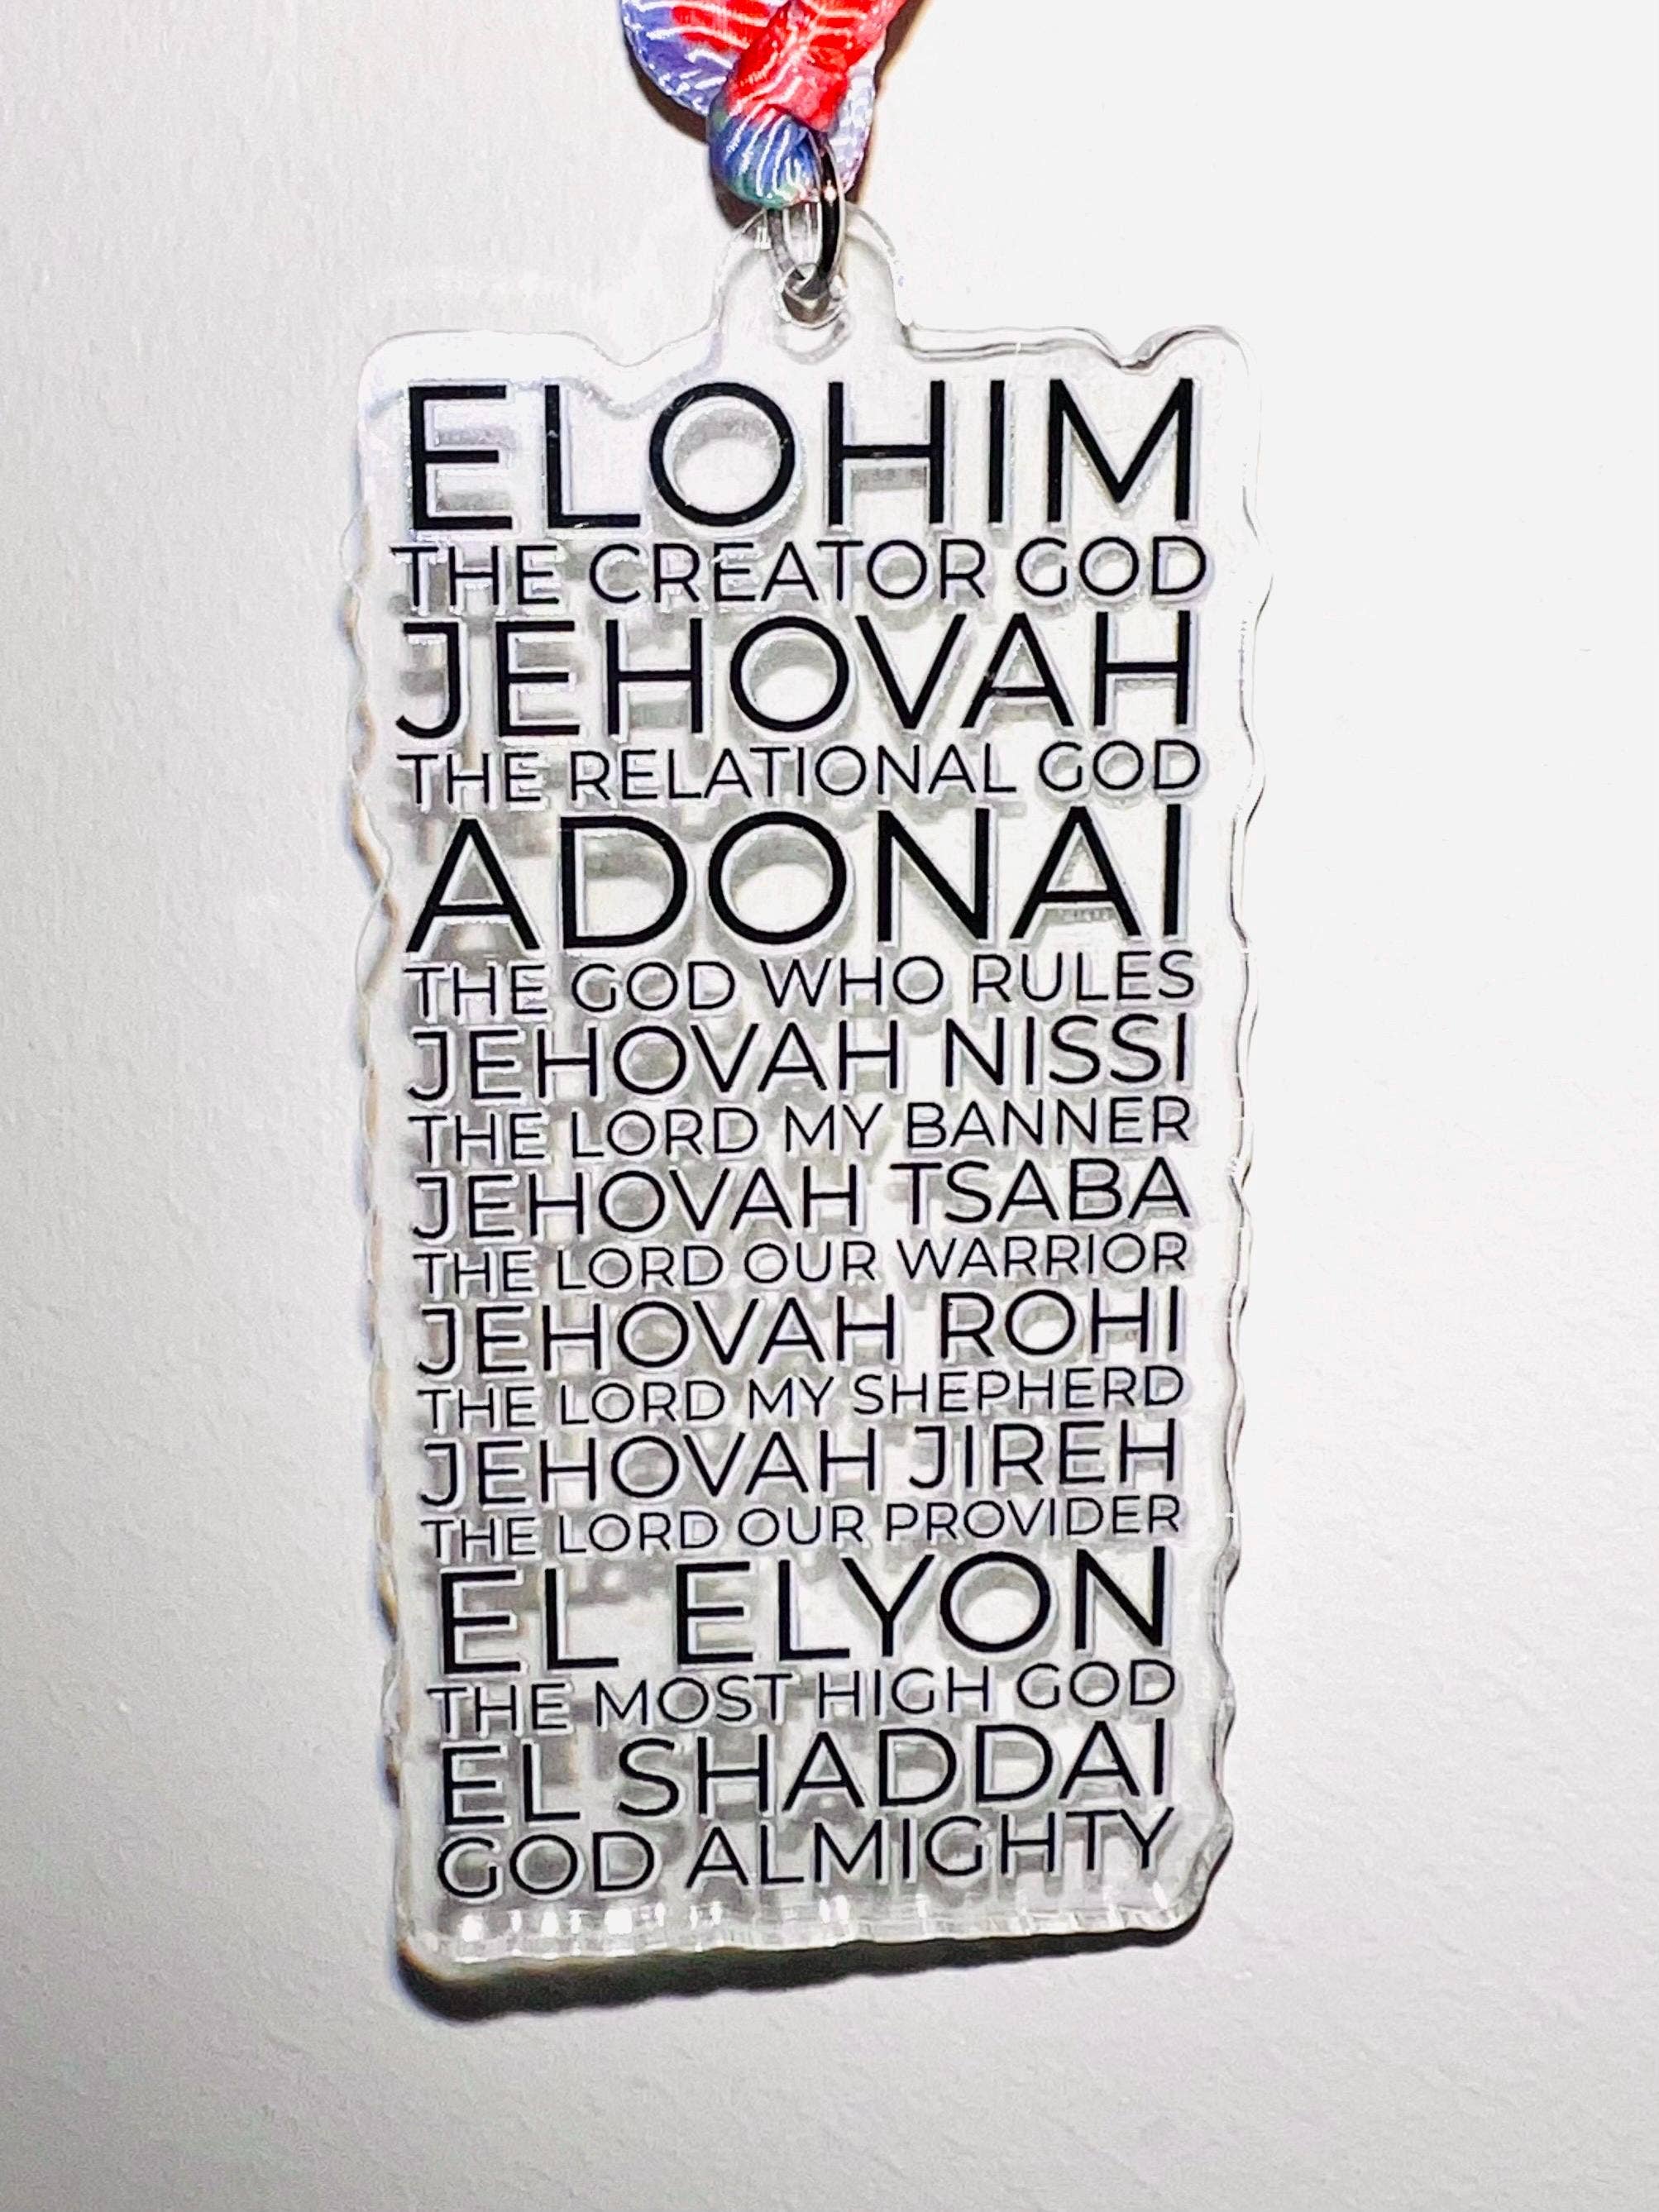 ELOHIM
THE CREATOR GOD
JEHOVAH
THE RELATIONAL GOD
ADONAI
THE GOD WHO RULES
JEHOVAH NISSI
THE LORD MY BANNER
JEHOVAH TSABA
THE LORD OUR WARRIOR
JEHOVAH ROHI
THE LORD MY SHEPHERD
JEHOVAH JIREH
THE LORD OUR PROVIDER
EL ELYON
THE MOST HIGH GOD
EL SHADDAI
GOD ALMIGHTY